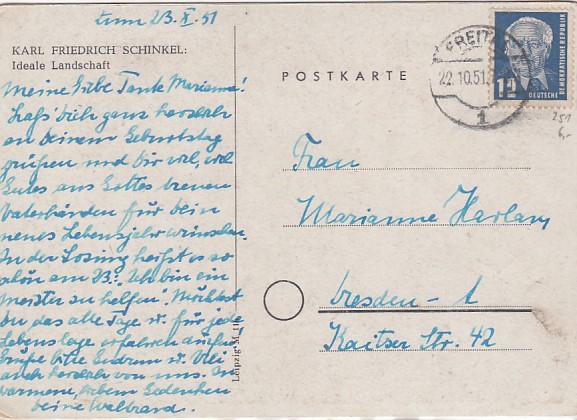 zum 23. X. 51
KARL FRIEDRICH SCHINKEL:
Ideale Landschaft
Meine liebe Tante Marianne!
Laß Dich ganz herzlich
an Deinem Geburtstag
grüßen und Dir viel, viel
Gutes aus Gottes treuen
Vaterhänden für Dein
neues Lebensjahr wünschen.
In der Losung heißt es so
schön am 23.: Ich bin ein
Meister zu helfen. Möchtest
Du das alle Tage u. für jede
Lebenslage erfahren dürfen.
Grüße bitte u.
auch herzlich von uns. In
warmem, liebem Gedenken
Deine
POSTKARTE
FREITAL
22.10.51
1
12
DEUTSCHE
DEMOKRATISCHE REPUBLIK
251
6,-
Frau
Marianne Harlan
Dresden - A
Kaitzer Str. 42
Leipzig M